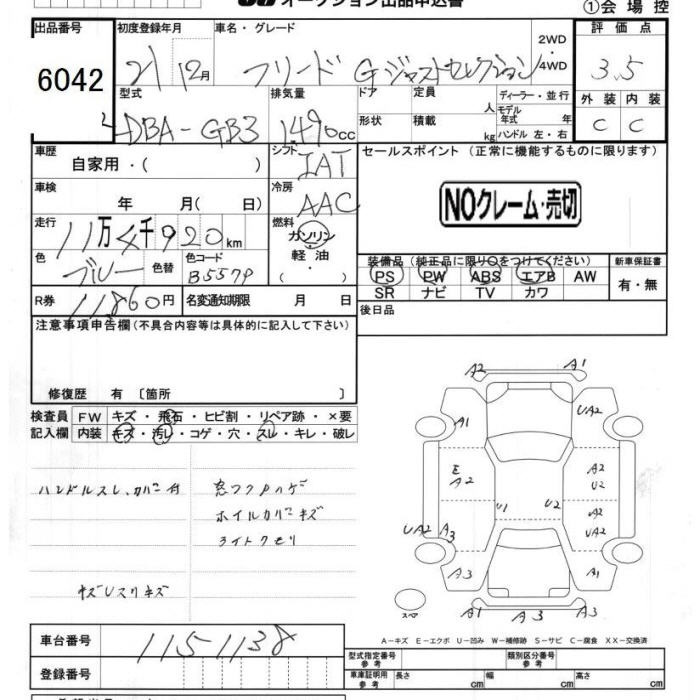 オークション出品申込書
①会場控
出品番号 初度登録年月 車名・グレード 評価点
6042 21 12月 フリード Gジャストセレクション 2WD・4WD 3.5
型式 排気量 ドア 定員 人 ディーラー・並行 外装 内装
DBA-GB3 1490cc 形状 積載 kg モデル年式 年 ハンドル 左・右 C C
車歴 シフト セールスポイント (正常に機能するものに限ります)
自家用・( ) IAT
車検 冷房 NOクレーム・売切
年 月( 日) AAC
走行 燃料
11万4千920km ガソリン・軽油・
色 色替 色コード 装備品 (純正品に限り○をつけてください) 新車保証書
ブルー B557P PS PW ABS エアB AW 有・無
R券 11860円 名変通知期限 月 日 SR ナビ TV カワ
注意事項申告欄 (不具合内容等は具体的に記入して下さい) 後日品
修復歴 有 〔箇所 〕
検査員記入欄 FW キズ・飛石・ヒビ割・リペア跡・×要
内装 キズ・汚レ・コゲ・穴・スレ・キレ・破レ
ハンドルスレ、カバー付
窓フクPハゲ
ホイルカバーキズ
ライトクモリ
キズUスリキズ
A2 A1
A1 UA2
E A2
A2 U2
U1 U2
A2 U2
UA2 A3
A3 A1
スペア
A1 A3 A3
A-キズ E-エクボ U-凹み W-補修跡 S-サビ C-腐食 XX-交換済
車台番号 1151138
型式指定番号 参考 類別区分番号 参考
登録番号 車庫証明用 参考 長さ cm 幅 cm 高さ cm